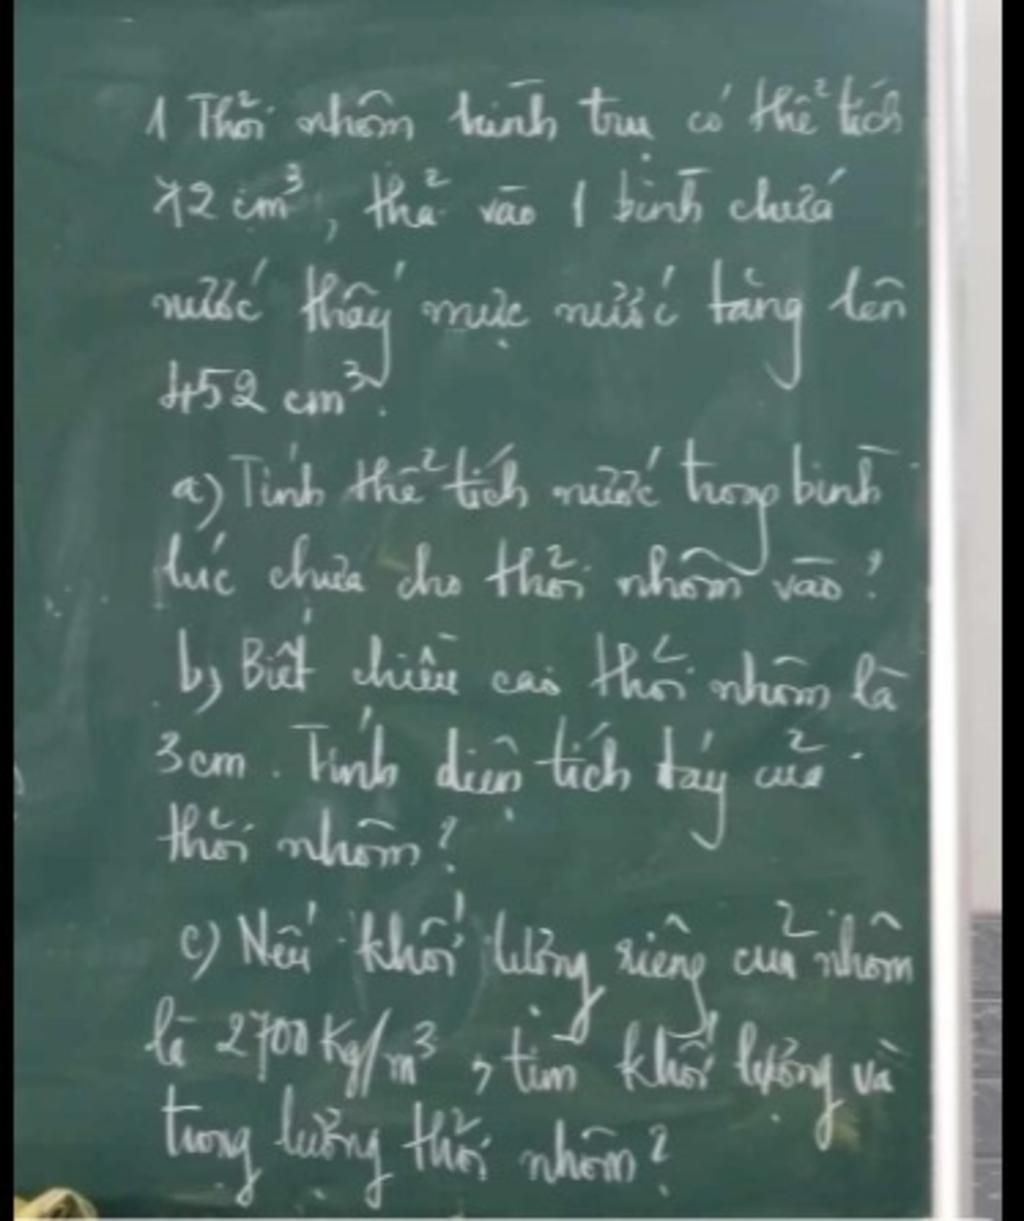 1 Thỏi nhôm hình trụ có thể tích
72 cm³, thả vào 1 bình chứa
nước thấy mực nước tăng lên
452 cm³.
a) Tính thể tích nước trong bình
lúc chưa cho thỏi nhôm vào?
b) Biết chiều cao thỏi nhôm là
3cm. Tính diện tích đáy của
thỏi nhôm?
c) Nếu khối lượng riêng của nhôm
là 2700 Kg/m³, tìm khối lượng và
trọng lượng thỏi nhôm?